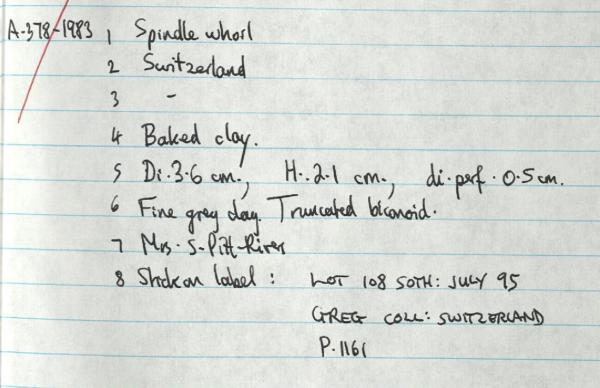 A.378-1983 1 Spindle whorl
2 Switzerland
3 -
4 Baked clay.
5 Di. 3.6 cm., H. 2.1 cm., di. perf. 0.5 cm.
6 Fine grey clay. Truncated biconoid.
7 Mrs. S. Pitt-Rivers
8 Stick on label: LOT 108 SOTH: JULY 95
GREG COLL: SWITZERLAND
P.1161